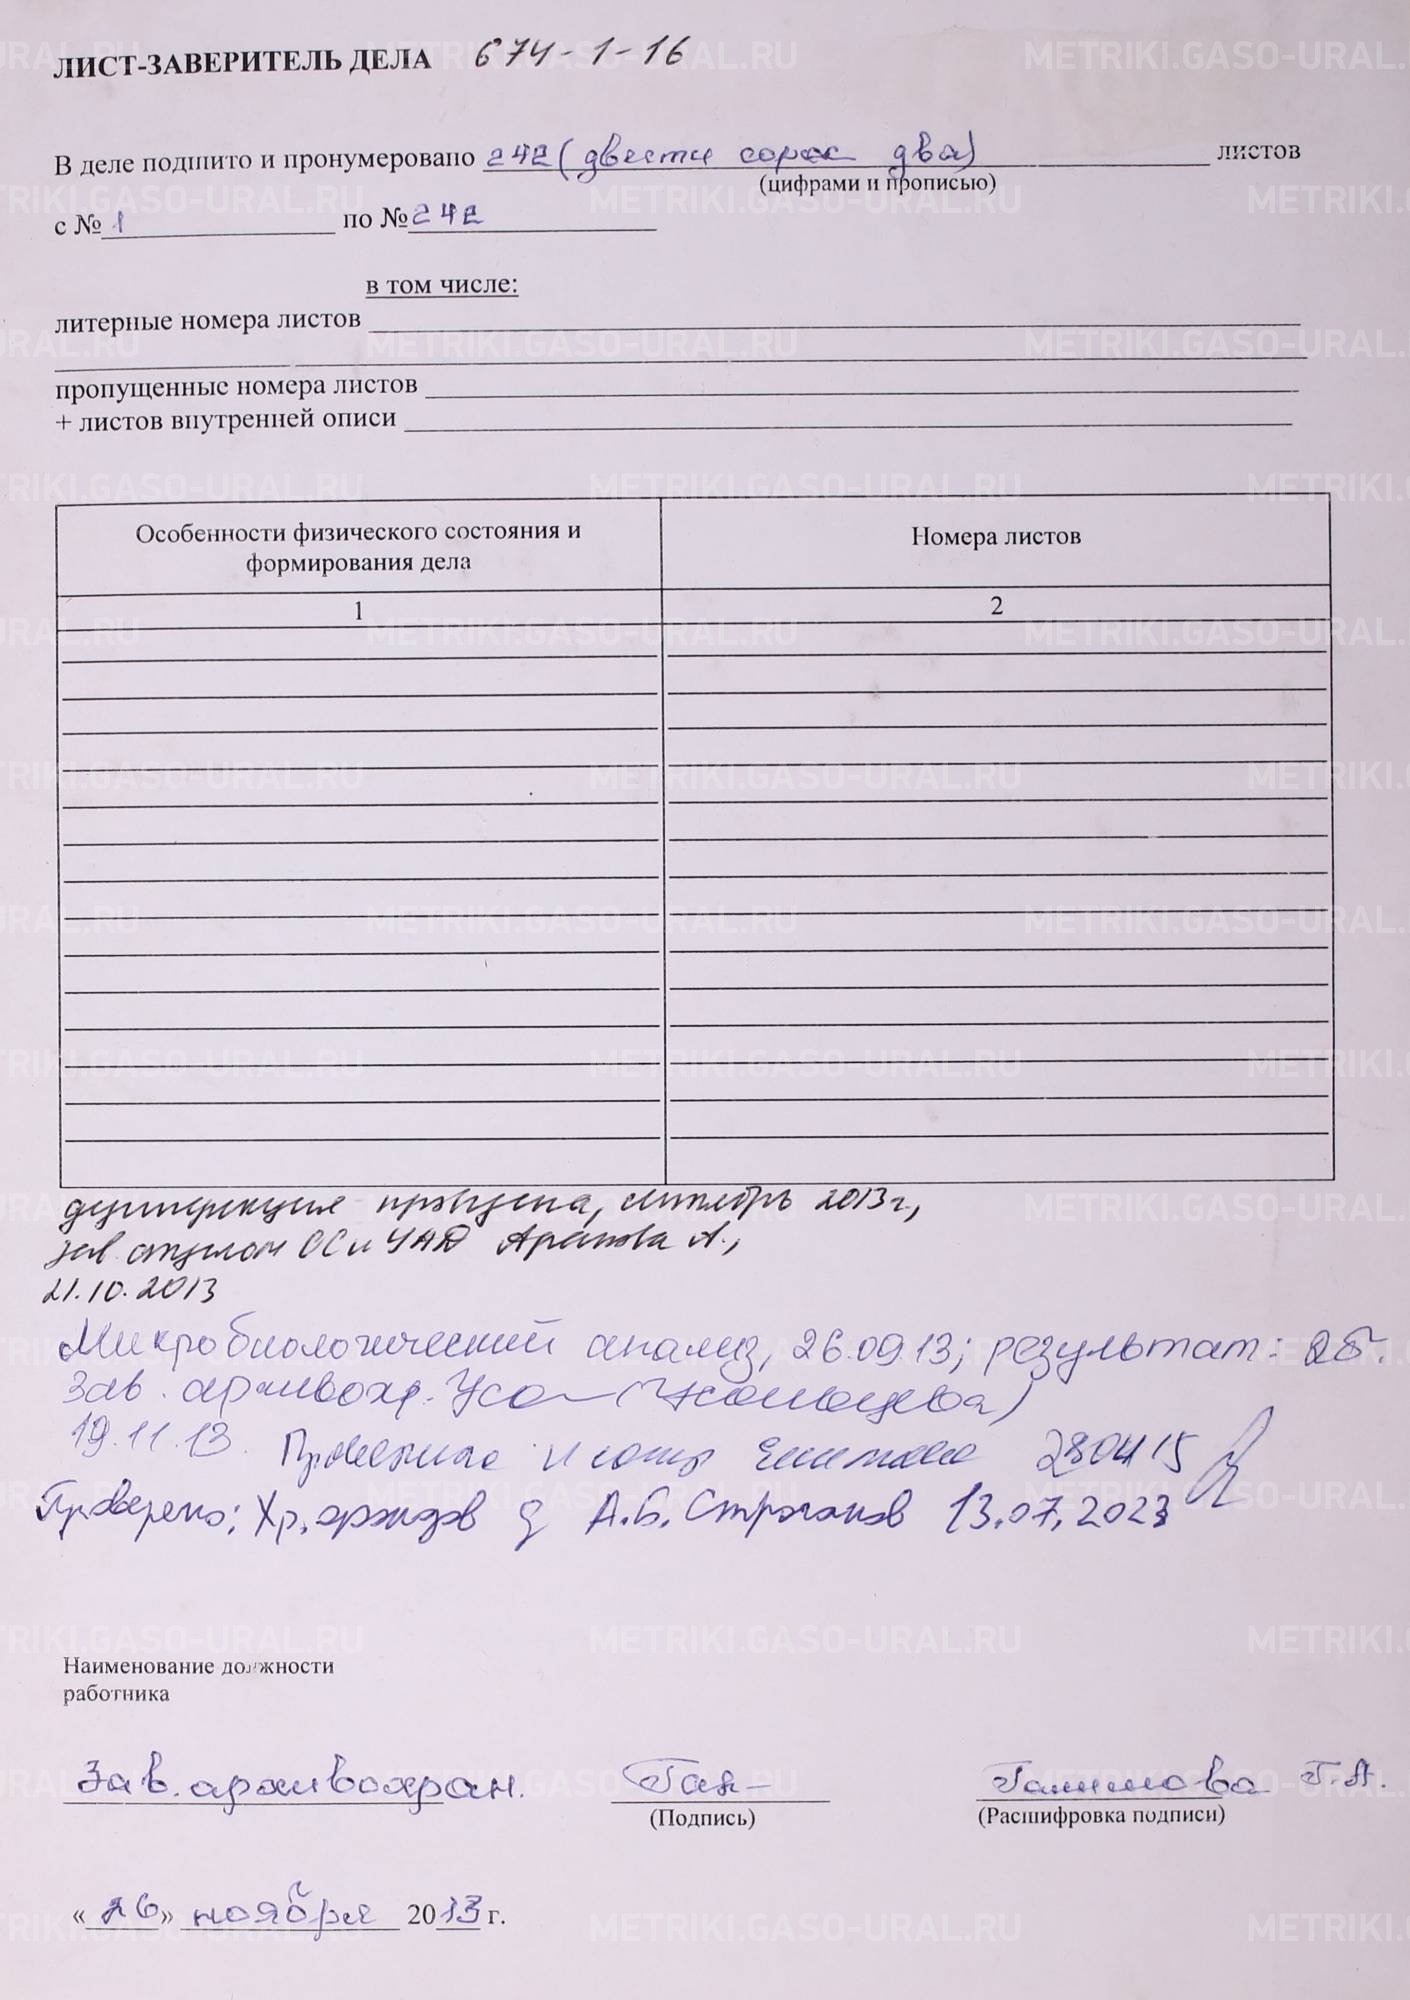 ЛИСТ-ЗАВЕРИТЕЛЬ ДЕЛА 674-1-16
В деле подшито и пронумеровано 242 (двести сорок два) листов
(цифрами и прописью)
с № 1 по № 242
в том числе:
литерные номера листов
пропущенные номера листов
+ листов внутренней описи
Особенности физического состояния и формирования дела
Номера листов
1 2
дезинфекция проведена, октябрь 2013 г.,
зав. отделом ОС и УАД А.,
21.10.2013
Микробиологический анализ, 26.09.13; результат:
Зав. архивохр.
19.11.13. 280415
Проверено: Хр. фондов А.Б. Строганов 13.07.2023
Наименование должности
работника
Зав. архивохран. Гал Г.А.
(Подпись) (Расшифровка подписи)
«26» ноября 2013 г.
METRIKI.GASO-URAL.RU